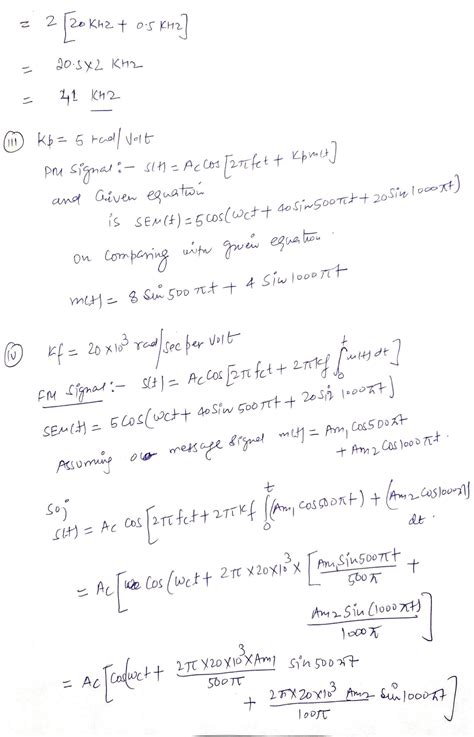 = 2 [20 KHz + 0.5 KHz]
= 20.5 x 2 KHz
= 41 KHz
(iii) Kp = 5 rad/Volt
PM Signal :- s(t) = Ac Cos [2πfct + Kp m(t)]
and Given equation
is SEM(t) = 5 cos(ωct + 40 sin 500πt + 20 Sin 1000πt)
on comparing with given equation.
m(t) = 8 Sin 500πt + 4 Sin 1000πt
(iv) Kf = 20 x 10³ rad/sec per Volt
FM Signal :- s(t) = Ac Cos [2πfct + 2πkf ∫₀ᵗ m(t) dt]
SEM(t) = 5 Cos(ωct + 40 Sin 500πt + 20 Sin 1000πt)
Assuming message signal m(t) = Am1 Cos 500πt
+ Am2 Cos 1000πt.
So,
s(t) = Ac Cos [2πfct + 2πKf ∫₀ᵗ (Am1 Cos 500πt) + (Am2 Cos 1000πt)
dt.
= Ac [Cos (ωct + 2π x 20 x 10³ x [Am1 Sin 500πt / 500π +
Am2 Sin (1000πt) / 1000π]
= Ac [Cos(ωct + 2π x 20 x 10³ x Am1 / 500π sin 500πt
+ 2π x 20 x 10³ Am2 / 100π Sin 1000πt]